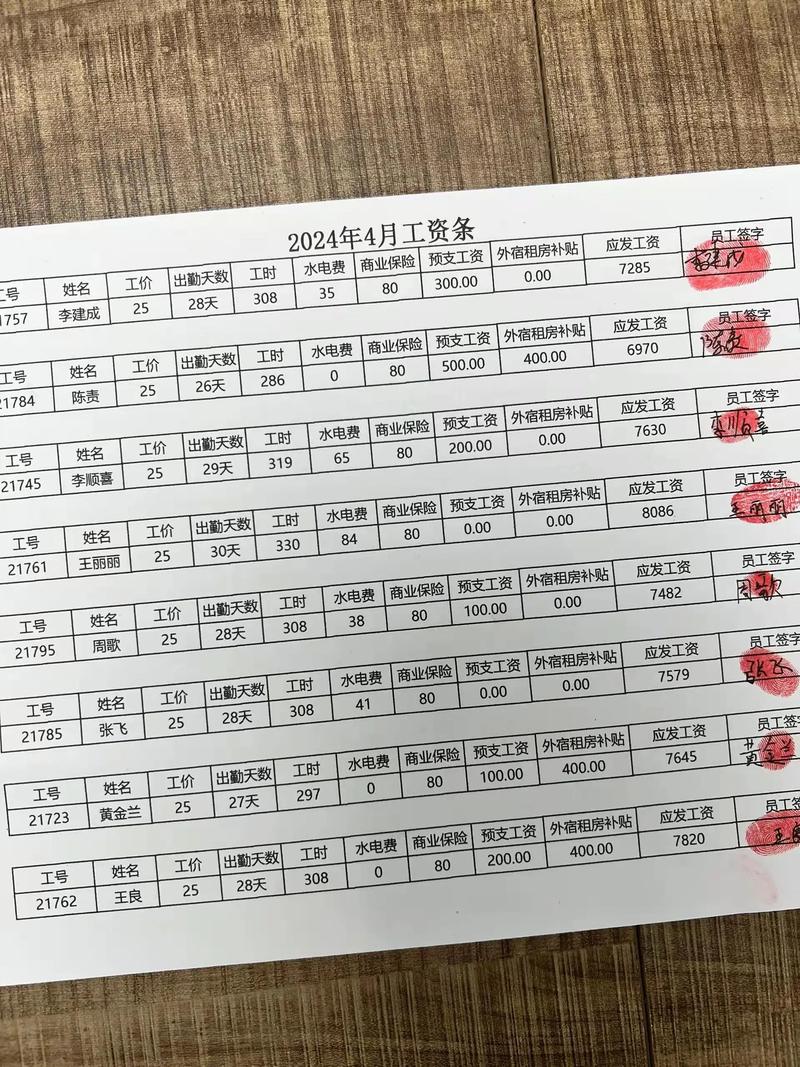 2024年4月工资条
工号 姓名 工价 出勤天数 工时 水电费 商业保险 预支工资 外宿租房补贴 应发工资 员工签字
1757 李建成 25 28天 308 35 80 300.00 0.00 7285 李建成
工号 姓名 工价 出勤天数 工时 水电费 商业保险 预支工资 外宿租房补贴 应发工资 员工签字
21784 陈责 25 26天 286 0 80 500.00 400.00 6970 陈责
工号 姓名 工价 出勤天数 工时 水电费 商业保险 预支工资 外宿租房补贴 应发工资 员工签字
21745 李顺喜 25 29天 319 65 80 200.00 0.00 7630 李顺喜
工号 姓名 工价 出勤天数 工时 水电费 商业保险 预支工资 外宿租房补贴 应发工资 员工签字
21761 王丽丽 25 30天 330 84 80 0.00 0.00 8086 王丽丽
工号 姓名 工价 出勤天数 工时 水电费 商业保险 预支工资 外宿租房补贴 应发工资 员工签字
21795 周歌 25 28天 308 38 80 100.00 0.00 7482 周歌
工号 姓名 工价 出勤天数 工时 水电费 商业保险 预支工资 外宿租房补贴 应发工资 员工签字
21785 张飞 25 28天 308 41 80 0.00 0.00 7579 张飞
工号 姓名 工价 出勤天数 工时 水电费 商业保险 预支工资 外宿租房补贴 应发工资 员工签
21723 黄金兰 25 27天 297 0 80 100.00 400.00 7645 黄金兰
工号 姓名 工价 出勤天数 工时 水电费 商业保险 预支工资 外宿租房补贴 应发工资 员工
21762 王良 25 28天 308 0 80 200.00 400.00 7820 王